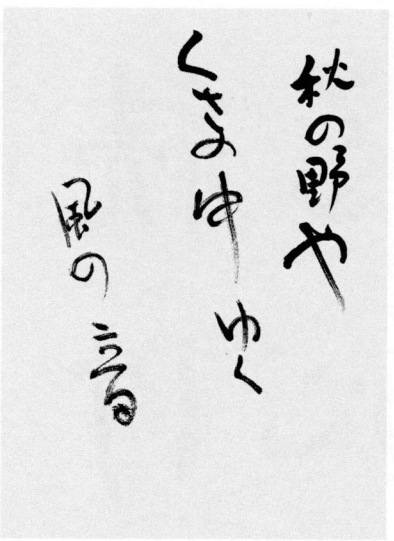 秋の野や
くさの中ゆく
風の音